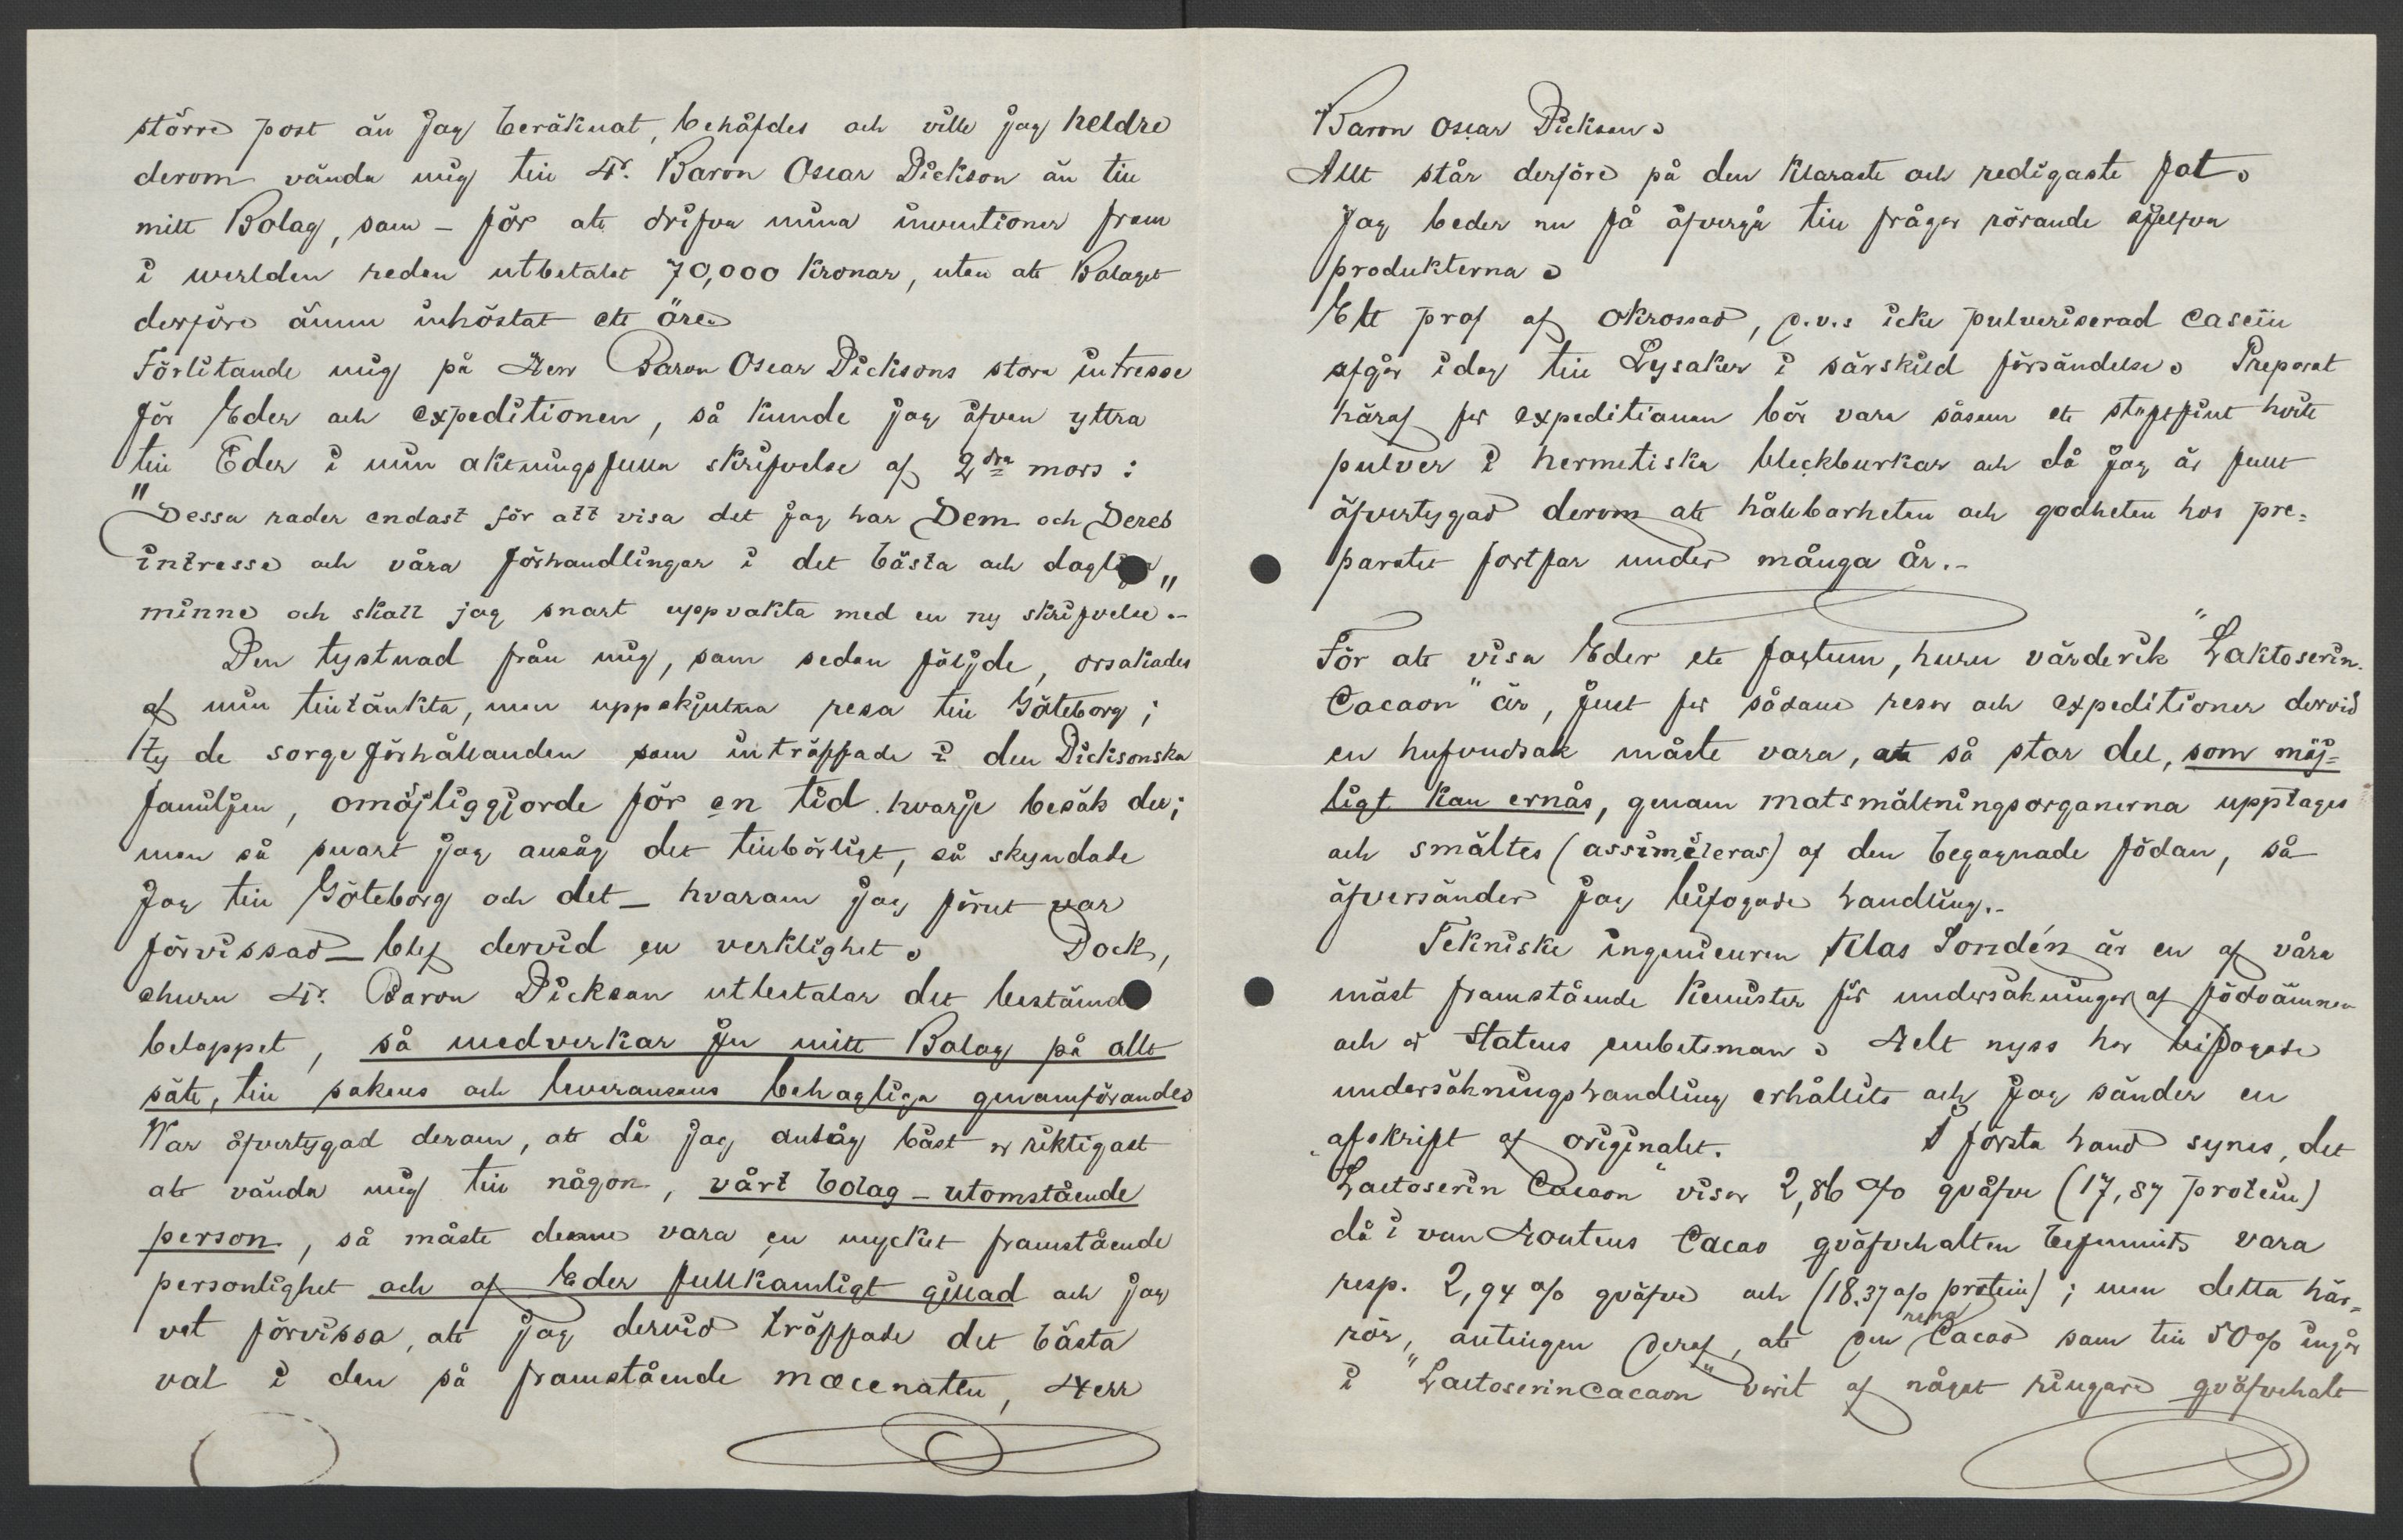 större post än jag beräknat, behöfdes och ville jag heldre
derom vända mig till Hr. Baron Oscar Dickson än till
mitt Bolag, som – för att drifva mina inventioner fram
i werlden redan utbetalat 70,000 Kronor, utan att Bolaget
derföre ännu inhöstat ett öre.
Förlitande mig på Herr Baron Oscar Dicksons stora intresse
för Eder och expeditionen, så kunde jag äfven yttra
till Eder i min aktningsfulla skrifvelse af 2dra mars:
"Dessa rader endast för att visa det jag har Dem och Deres
intresse och våra förhandlingar i det bästa och dagliga"
minne och skall jag snart uppvakta med en ny skrifvelse.–
Den tystnad från mig, som sedan följde, orsakades
af min tilltänkta, men uppskjutna resa till Göteborg;
ty de sorgeförhållanden som inträffade i den Dicksonska
familjen, omöjliggjorde för en tid hvarje besök der;
men så snart jag ansåg det tillbörligt, så skyndade
Jag till Göteborg och det – hvarom jag förut var
förvissad – blef dervid en verklighet. Dock,
ehuru Hr. Baron Dickson utbetalar det bestämda
beloppet, så medverkar ju mitt Bolag på allt
sätt, till sakens och leveransens behagliga genomförande.
War öfvertygad derom, att då jag ansåg bäst o riktigast
att vända mig till någon, vårt bolag – utomstående
person, så måste denne vara en mycket framstående
personlighet och af Eder fullkomligt gillad och jag
vet förvissa, att jag dervid träffade det bästa
val i den så framstående mæcenaten, Herr
Baron Oscar Dickson.
Allt står derföre på den klaraste och redigaste fot.
Jag beder nu få öfvergå till frågor rörande sjelfva
produkterna.
Ett prof af okrossad, d.v.s icke pulveriserad casein
afgår idag till Lysaker i särskild försändelse. Preparat
häraf för expeditionen bör vara såsom ett stoftfint hvitt
pulver i hermetiska bleckburkar och då jag är fullt
öfvertygad derom att hållbarheten och godheten hos pre=
paratet fortfar under många år.–
För att visa Eder ett factum, huru värderik "Laktoserin.
Cacaon" är, just för sådana resor och expeditioner dervid
en hufvudsak måste vara, att så stor del, som möj=
ligt kan ernås, genom matsmältningsorganerna upptages
och smältes (assimileras) af den begagnade födan, så
öfversänder jag bifogade handling.–
Tekniske ingenieuren Klas Sondén är en af våra
mäst framstående Kemister för undersökningar af födoämnen
och är Statens embetsman. Helt nyss har bifogade
undersökningshandling erhållits och jag sänder en
afskrift af originalet. I första hand synes, det
"Lactoserin Cacaon" visar 2,86 % qväfve (17,87 protein)
då i van Houtens Cacao qväfvehalten befunnits vara
resp. 2,94 % qväfve och (18.37 % protein); men detta här=
rör, antingen deraf, att den rena Cacao som till 50 % ingår
i "Lactoserincacaon" varit af något ringare qväfvehalt